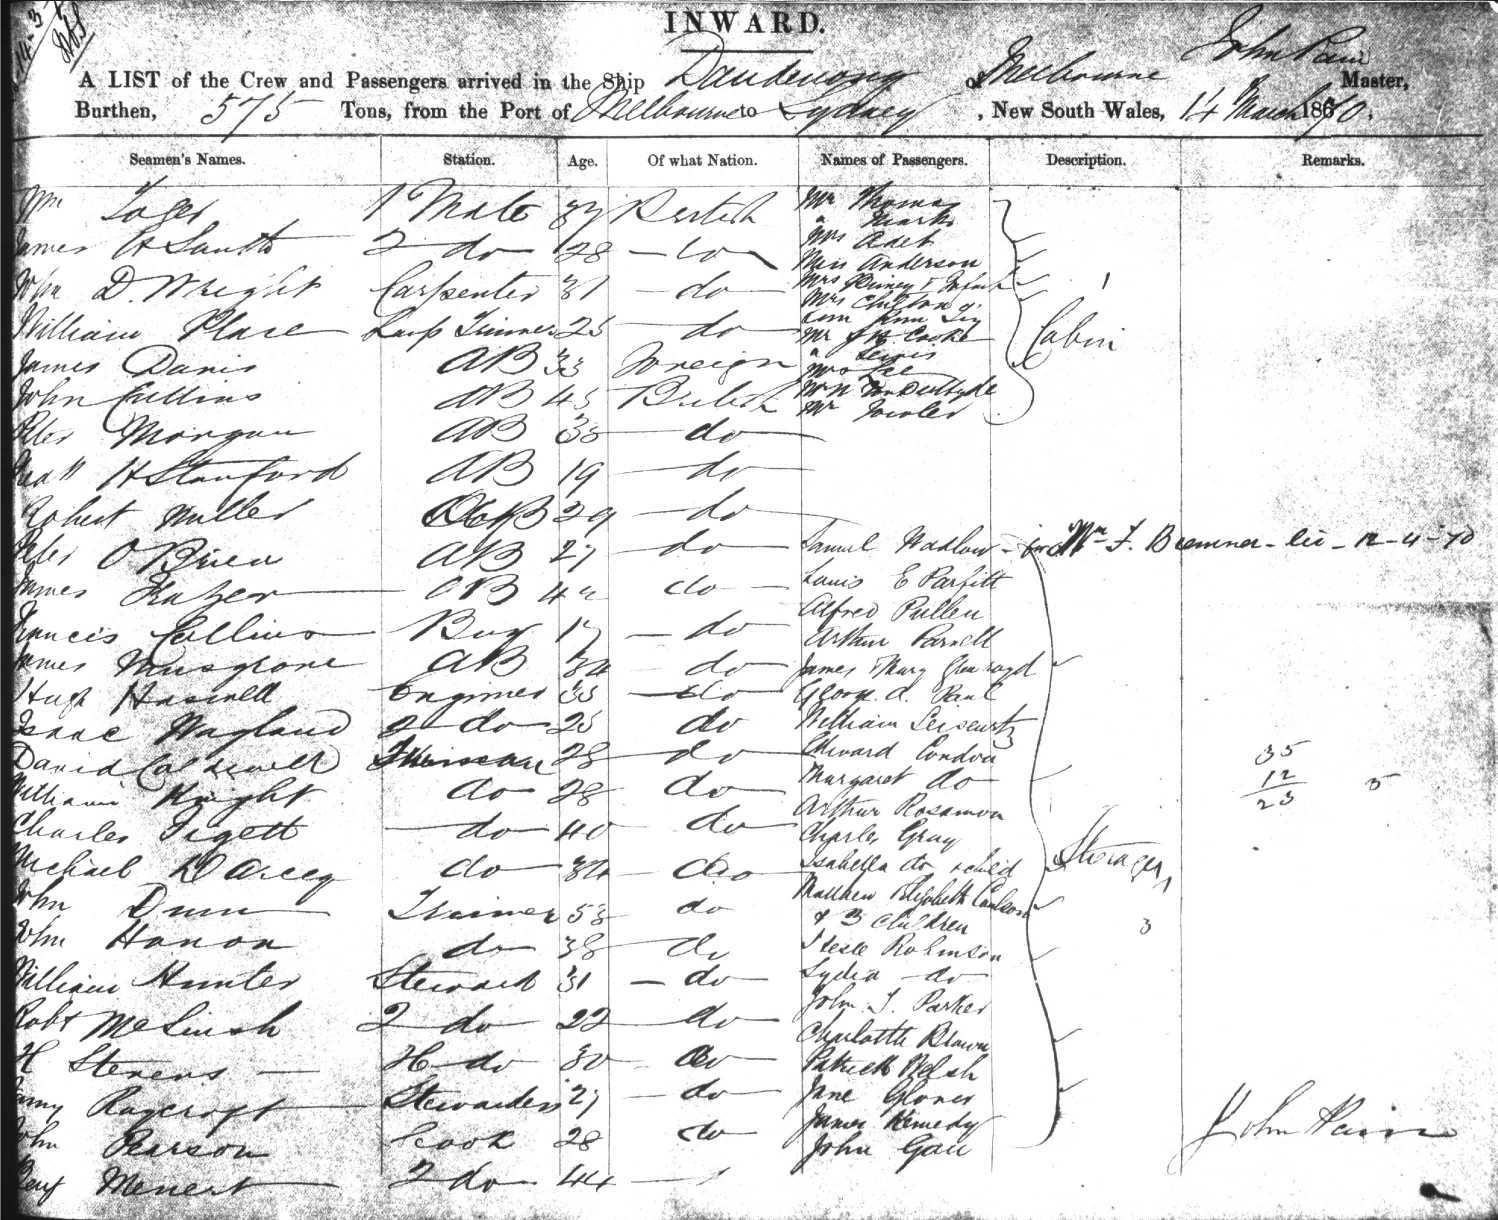 14-3
INWARD.
A LIST of the Crew and Passengers arrived in the Ship Dandenong of Melbourne John Pain Master,
Burthen, 575 Tons, from the Port of Melbourne to Sydney, New South Wales, 14 March 1870.
Seamen's Names. Station. Age. Of what Nation. Names of Passengers. Description. Remarks.
Wm 1 Mate 37 British
James H Smith 2 do 28 do
John D. Wright Carpenter 31 do
William Place Lamp Trimmer 25 do
James Davis AB 33 Foreign
John Collins AB 45 British
Peter Morgan AB 38 do
H Stanford AB 19 do
Robert Miller AB 29 do
Peter O'Brien AB 27 do
James Frazer AB do
Francis Collins Boy 17 do
James Musgrove AB 34 do
Hugh Haswell Engineer 33 do
Isaac Wayland 2 do 25 do
David Caldwell Fireman 28 do
William Knight do 28 do
Charles Figett do 40 do
Michael Darcey do 34 do
John Dunn Trimmer 53 do
John Hanon do 38 do
William Hunter Steward 31 do
Robt 2 do 22 do
H Stevens do 30 do
Raycroft Stewardess 27 do
John Pearson Cook 28 do
Benj Menert 2 do 44
Mr Thomas
" Marks
Mrs Adet
Miss Anderson
Mrs & Infant
Mrs Chilton &
Mr Cooke
" Lewis
Mrs Lee
Mr Fowler
Cabin
1
Samuel Wadlow - Wm F. Bremner - lic - 12-4-70
Louis E Parfitt
Alfred Pullen
Arthur Parnell
James & Mary
George A. Paul
William
Edward Condon
Margaret do
Arthur Rosamon
Charles Gray
Isabella do & child
Matthew Elizabeth Coulson
& 3 children
Robinson
Lydia do
John T. Parker
Charlotte Brown
Patrick Welsh
Jane Glover
James Kennedy
John Gall
Steerage
1
3
35
12
23
5
John Pain